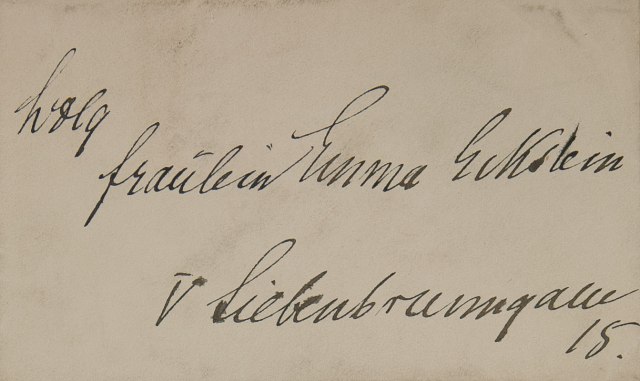 Wolg
Fräulein Emma Eckstein
V Siebenbrunngasse
15.